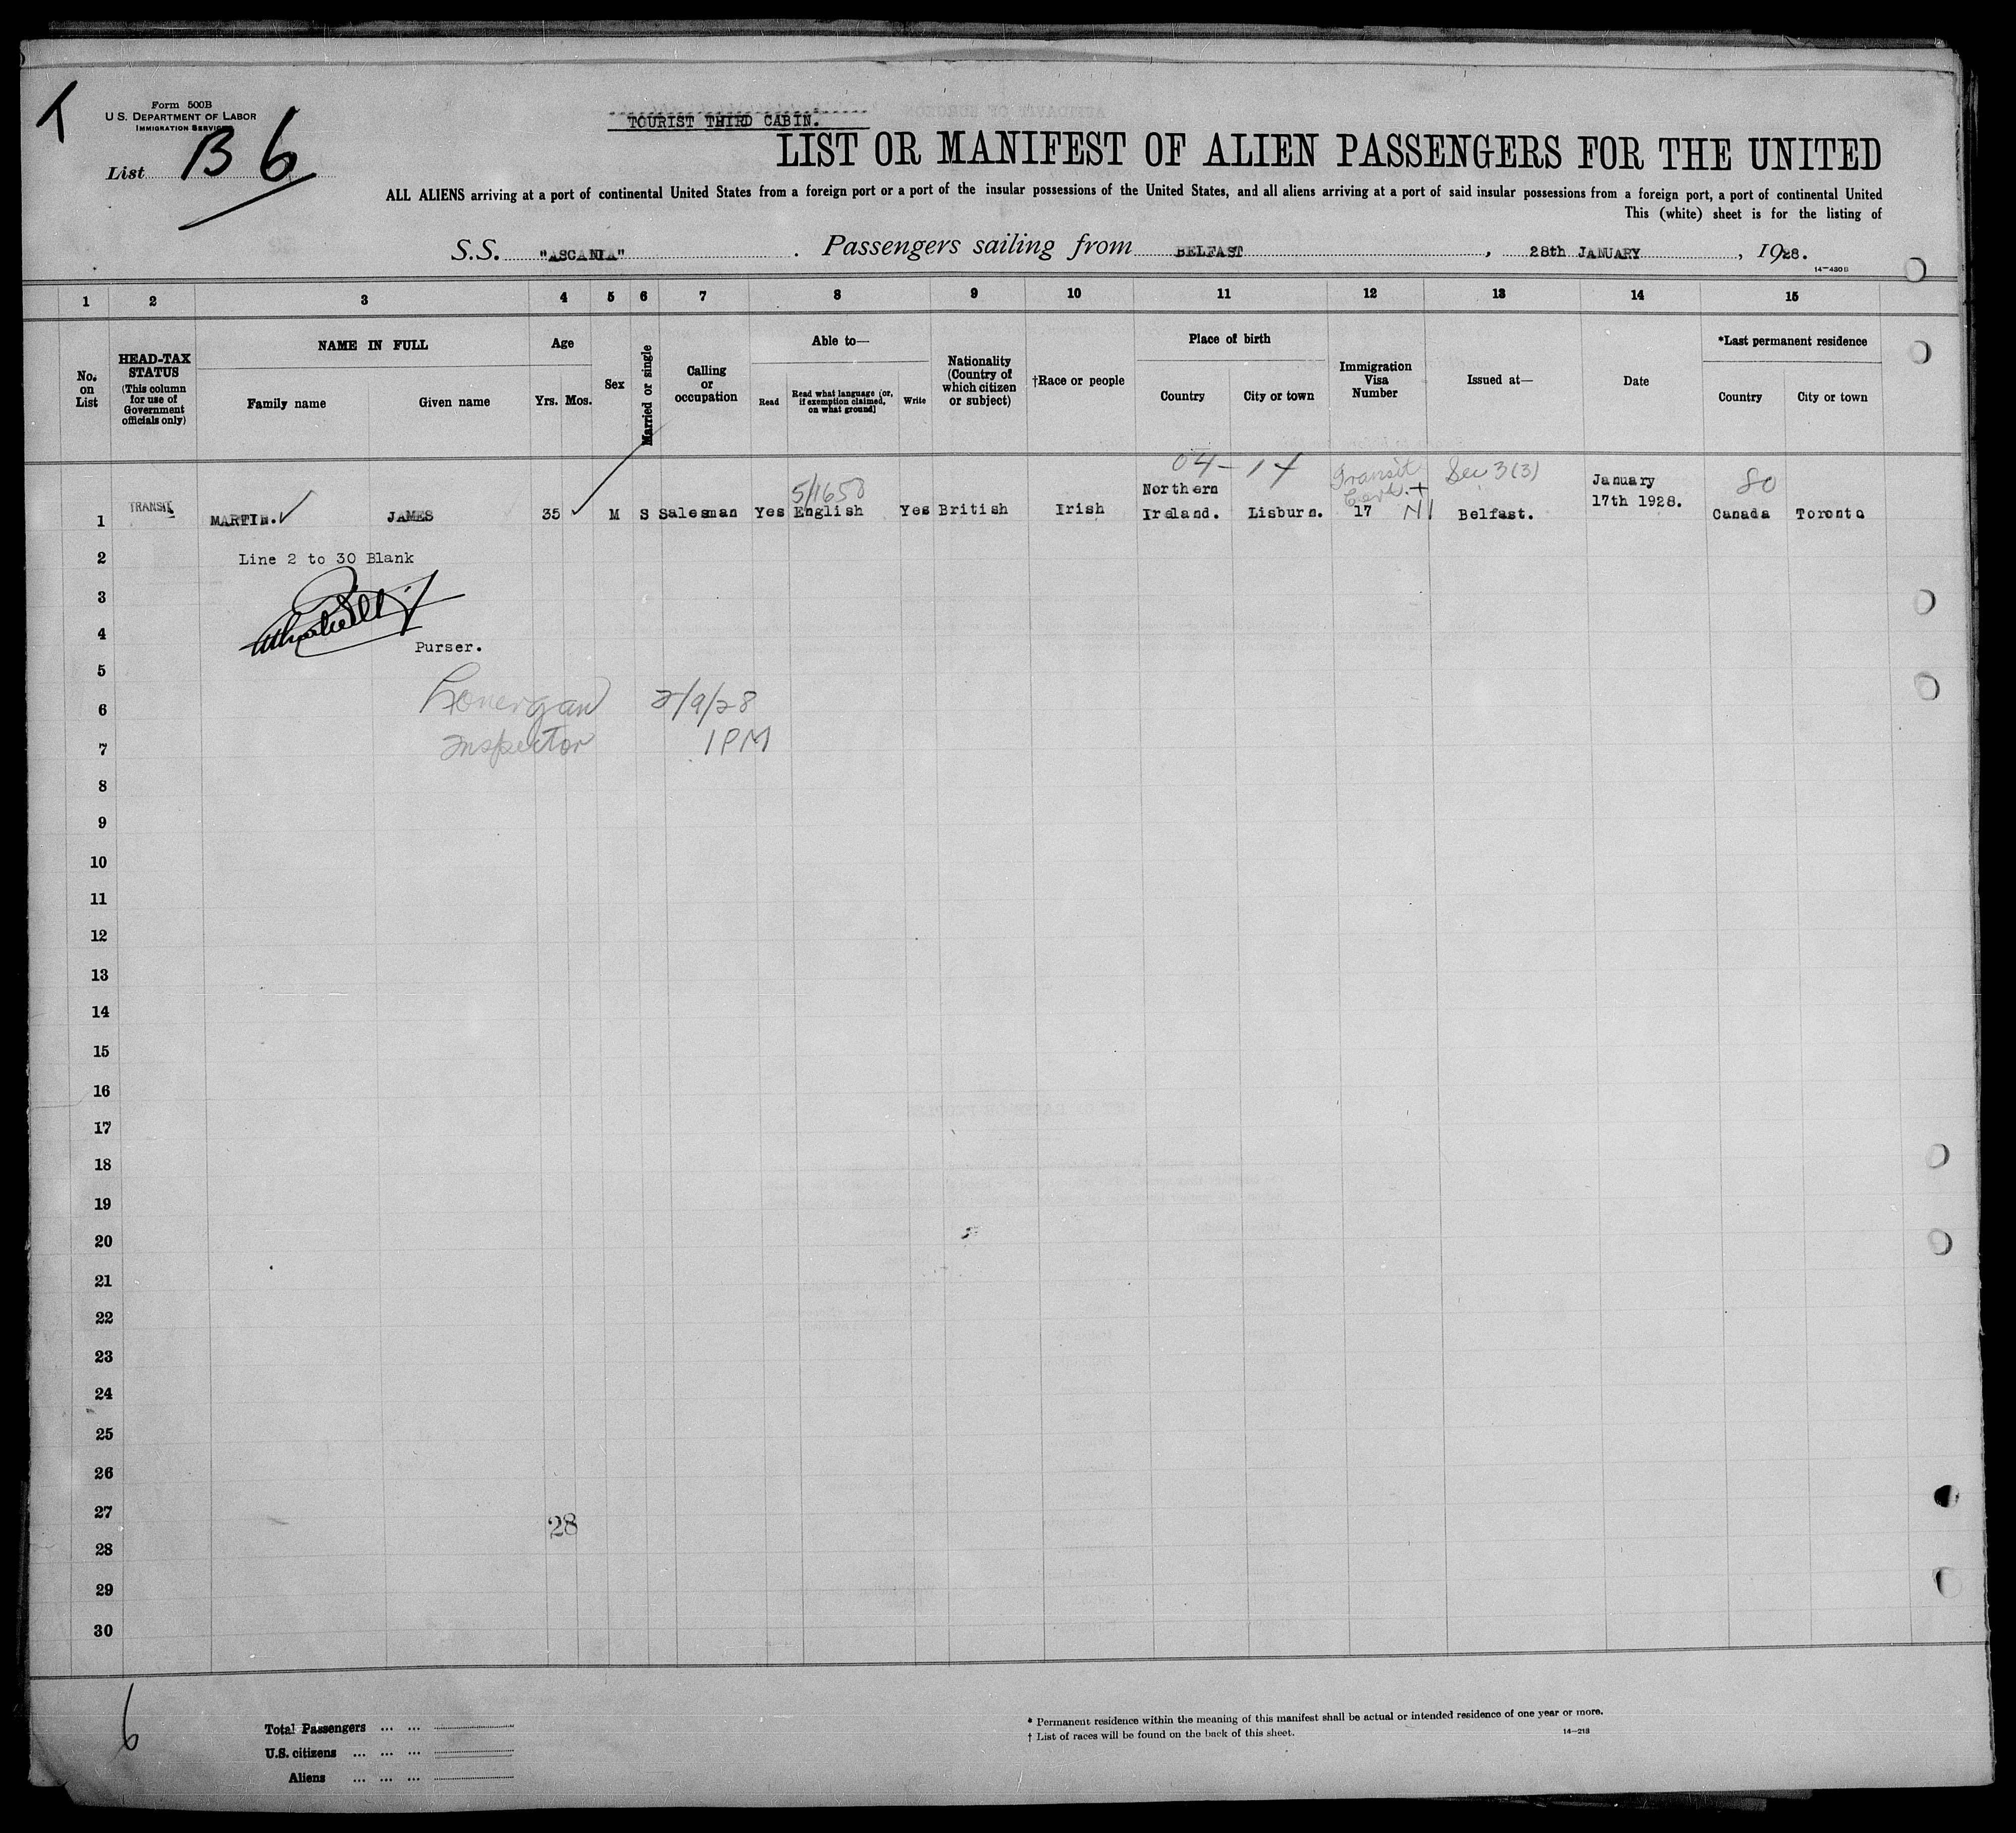 Form 500B
U.S. DEPARTMENT OF LABOR
IMMIGRATION SERVICE
List B 6
TOURIST THIRD CABIN.
LIST OR MANIFEST OF ALIEN PASSENGERS FOR THE UNITED
ALL ALIENS arriving at a port of continental United States from a foreign port or a port of the insular possessions of the United States, and all aliens arriving at a port of said insular possessions from a foreign port, a port of continental United
This (white) sheet is for the listing of
S.S. "ASCANIA". Passengers sailing from BELFAST, 28th JANUARY, 1928.
14-430B
1 2 3 4 5 6 7 8 9 10 11 12 13 14 15
No. on List
HEAD-TAX STATUS (This column for use of Government officials only)
NAME IN FULL
Family name Given name
Age
Yrs. Mos.
Sex
Married or single
Calling or occupation
Able to—
Read
Read what language (or, if exemption claimed, on what ground)
Write
Nationality (Country of which citizen or subject)
†Race or people
Place of birth
Country City or town
Immigration Visa Number
Issued at—
Date
*Last permanent residence
Country City or town
04-14 Transit Cert. + Sec 3(3) 80
5/1658
1 TRANSIT MARTIN. ✓ JAMES 35 ✓ M S Salesman Yes English Yes British Irish Northern Ireland. Lisburn. 17 NI Belfast. January 17th 1928. Canada Toronto
2 Line 2 to 30 Blank
3
4
Purser.
5
6 Lonergan 2/9/28
7 Inspector 1PM
8
9
10
11
12
13
14
15
16
17
18
19
20
21
22
23
24
25
26
27
28
28
29
30
6
Total Passengers ... ...
U.S. citizens ... ... ...
Aliens ... ... ...
* Permanent residence within the meaning of this manifest shall be actual or intended residence of one year or more.
† List of races will be found on the back of this sheet.
14-213